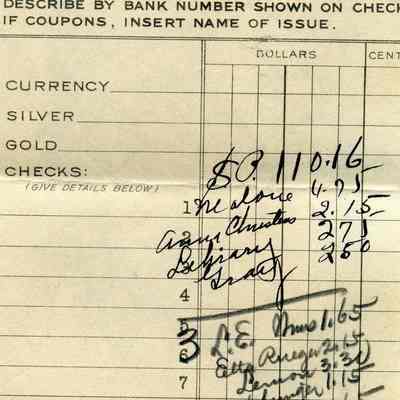 DESCRIBE BY BANK NUMBER SHOWN ON CHECK
IF COUPONS, INSERT NAME OF ISSUE.
DOLLARS CENT
CURRENCY
SILVER
GOLD
CHECKS:
(GIVE DETAILS BELOW)
110.16
1 Malone 4.75
2 Christess 2.15
3 271
Grady 250
4
5
3 L.E. 1.65
6 Etta Rueger 2.15
Lemon 3.30
7 1.15